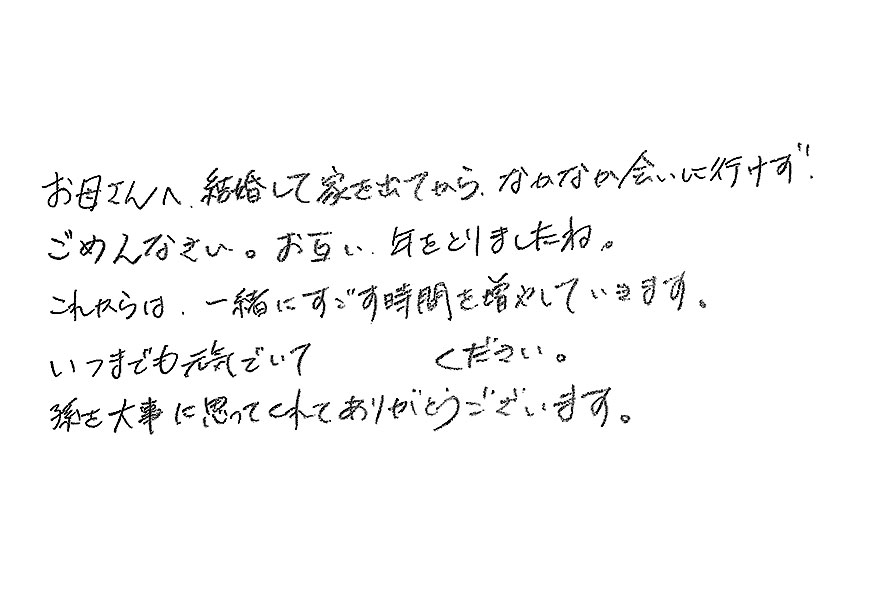 お母さんへ、結婚して家を出てから、なかなか会いに行けず、
ごめんなさい。お互い、年をとりましたね。
これからは、一緒にすごす時間を増やしていきます。
いつまでも元気でいて　　　ください。
孫を大事に思ってくれてありがとうございます。